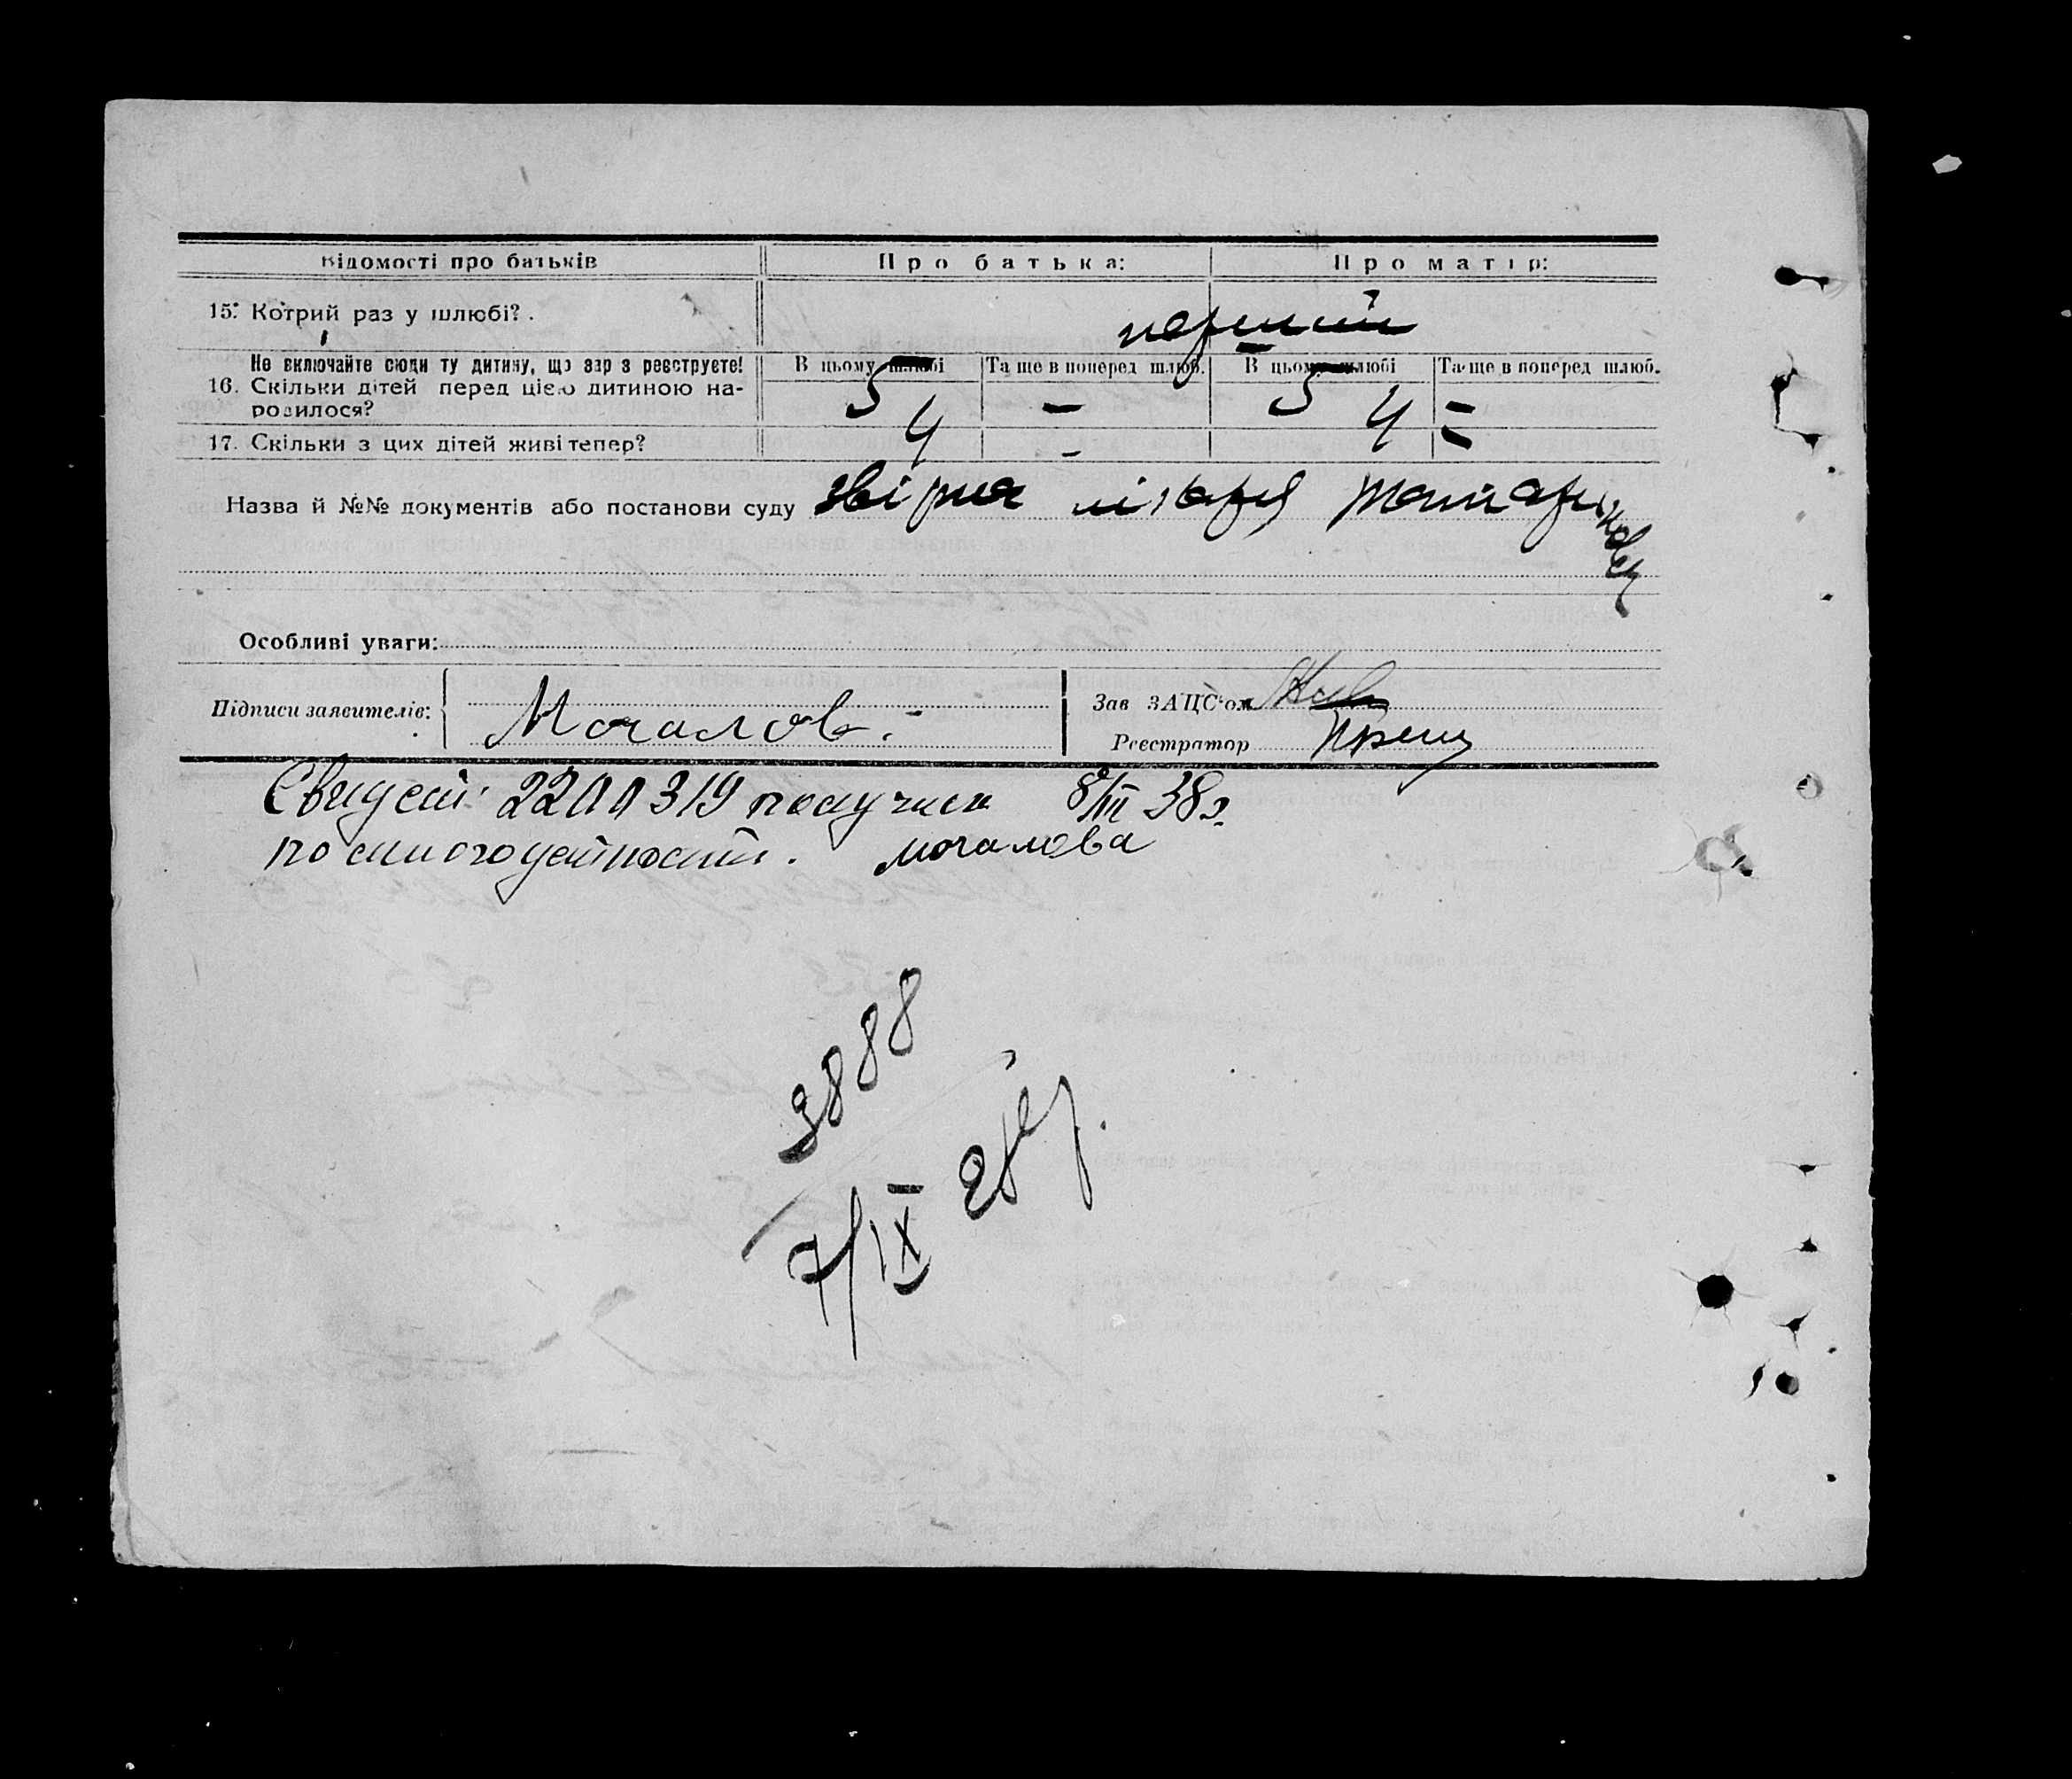 Відомості про батьків Про батька: Про матір:
15. Котрий раз у шлюбі? . перший
Не включайте сюди ту дитину, що зар з реєструєте! В цьому шлюбі Та ще в поперед шлюб. В цьому шлюбі Та ще в поперед шлюб.
16. Скільки дітей перед цією дитиною на-
родилося? 5 – 5 –
17. Скільки з цих дітей живі тепер? 4 – 4 –
Назва й №№ документів або постанови суду лікаря
Особливі уваги:
Підписи заявителів: Мочалов.
Зав ЗАЦС'ом
Реєстратор
Свидет. 2200319 получил 8/III 38г.
мочалова
3888
7/IX